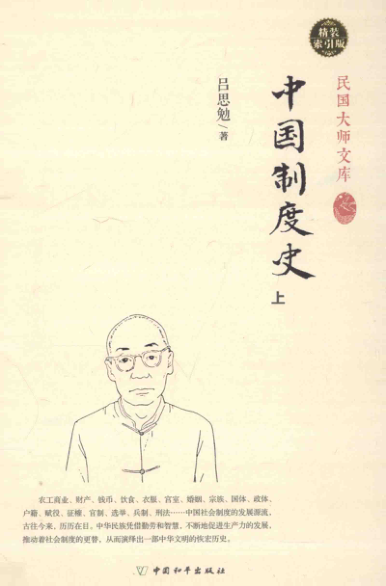 精装
索引版
民国大师文库
中国制度史
上
吕思勉/著
农工商业、财产、钱币、饮食、衣服、宫室、婚姻、宗族、国体、政体、
户籍、赋役、征榷、官制、选举、兵制、刑法……中国社会制度的发展源流,
古往今来,历历在目。中华民族凭借勤劳和智慧,不断地促进生产力的发展,
推动着社会制度的更替,从而演绎出一部中华文明的恢宏历史。
中国和平出版社